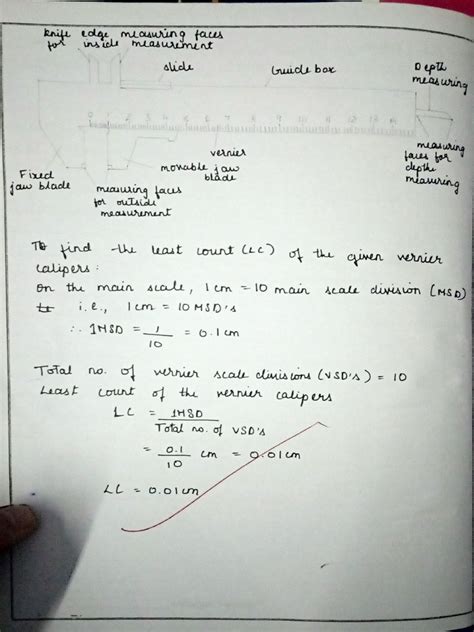 knife edge measuring faces
for inside measurement
slide
Guide box
Depth
measuring
0 1 2 3 4 5 6 7 8 9 10 11 12 13 14
vernier
measuring
faces for
depthe
measuring
Fixed
jaw blade
movable jaw
blade
measuring faces
for outside
measurement
To find the least count (LC) of the given vernier
calipers :
On the main scale, 1 cm = 10 main scale division (MSD)
i.e., 1 cm = 10 MSD's
∴ 1MSD = 1/10 = 0.1 cm
Total no. of vernier scale divisions (VSD's) = 10
Least count of the vernier calipers
LC = 1MSD / Total no. of VSD's
= 0.1/10 cm = 0.01 cm
LC = 0.01 cm